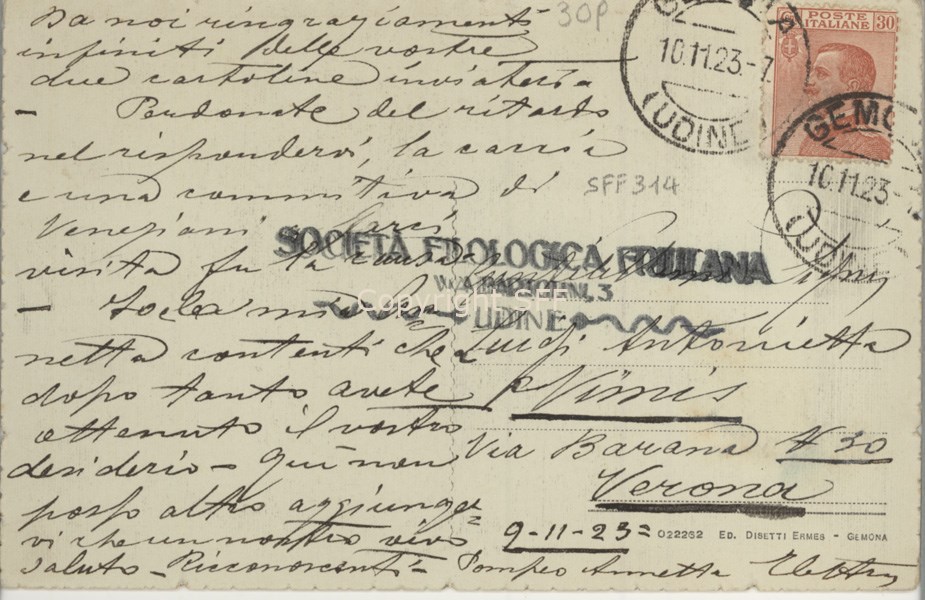 Da noi ringraziamenti
infiniti delle vostre
due cartoline inviateci
- Perdonate del ritardo
nel rispondervi, la
e una comitiva di
Veneziani
visita fu la causa
-
netta contenti che
dopo tanto avete
ottenuto il vostro
desiderio - Qui non
posso altro aggiunge=
vi che un nostro vivo
saluto - Pompeo Annetta
30P
SFF 314
POSTE ITALIANE 30
GEMONA
10.11.23.-7
(UDINE)
GEMONA
10.11.23-
(UDINE)
SOCIETÀ FILOLOGICA FRIULANA
VIA MANIN, 3
UDINE
Copyright SFF
Luigi Antonietta
Nimis
Via Barana N 30
Verona
9-11-23=
022262 ED. DISETTI ERMES - GEMONA